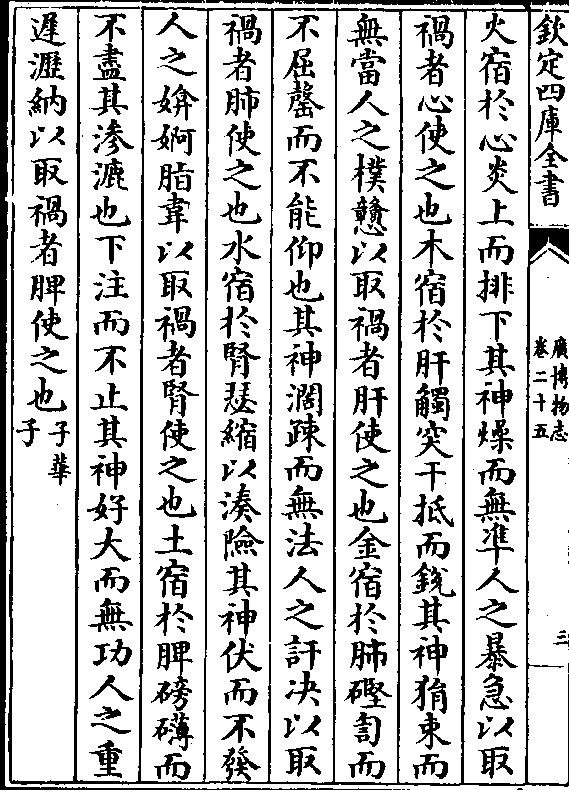 欽定四庫全書
廣博物志
卷二十五
三
火宿於心炎上而排下其神燥而無準人之暴急以取
禍者心使之也木宿於肝觸突干抵而銳其神狷束而
無當人之樸戇以取禍者肝使之也金宿於肺硜訇而
不屈罄而不能仰也其神濶疎而無法人之訐決以取
禍者肺使之也水宿於腎瑟縮以湊險其神伏而不發
人之媕婀脂韋以取禍者腎使之也土宿於脾磅礴而
不盡其滲漉也下注而不止其神好大而無功人之重
遲瀝納以取禍者脾使之也子華
子